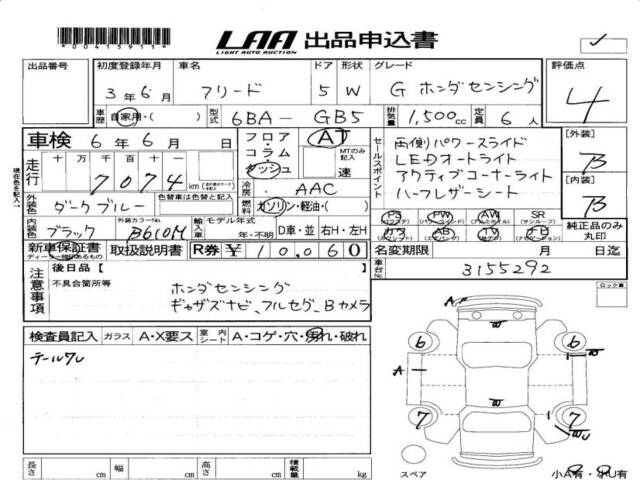 *00415911*
LAA 出品申込書
LIGHT AUTO AUCTION
出品番号 初度登録年月 車名 ドア 形状 グレード 評価点
3年6月 フリード 5 W G ホンダセンシング 4
車歴 自家用・( ) 型式 6BA- GB5 排気量 1,500cc 定員 6人
車検 6年6月 日 フロア・コラム・ダッシュ AT MTのみ記入 速
セールスポイント 両側パワースライド
LEDオートライト
アクティブコーナーライト
ハーフレザーシート
[外装] B
[内装] B
走行 十 万 千 百 十 一
7074 km
冷房 AAC
外装色 ダークブルー 色替車は色替と記入 燃料 ガソリン・軽油・( )
内装色 ブラック 外装カラーNo. B610M 輸入車 モデル年式 年・不明 D車・並 右H・左H
PS PW AW SR
AB TV
純正品のみ丸印
新車保証書 取扱説明書 R券 ¥10,060 名変期限 月 日迄
車台No. 3155292
注意事項 後日品【 】
不具合箇所等
ホンダセンシング
ギャザズナビ、フルセグ、Bカメラ
ロック車
検査員記入 ガラス A・X要ス 室内シート A・コゲ・穴・汚れ・破れ
テールワレ
A
6 6
A B
W
7 7
W WU
長さ cm 幅 cm 高さ cm 積載量 kg
スペア 小A有・小U有